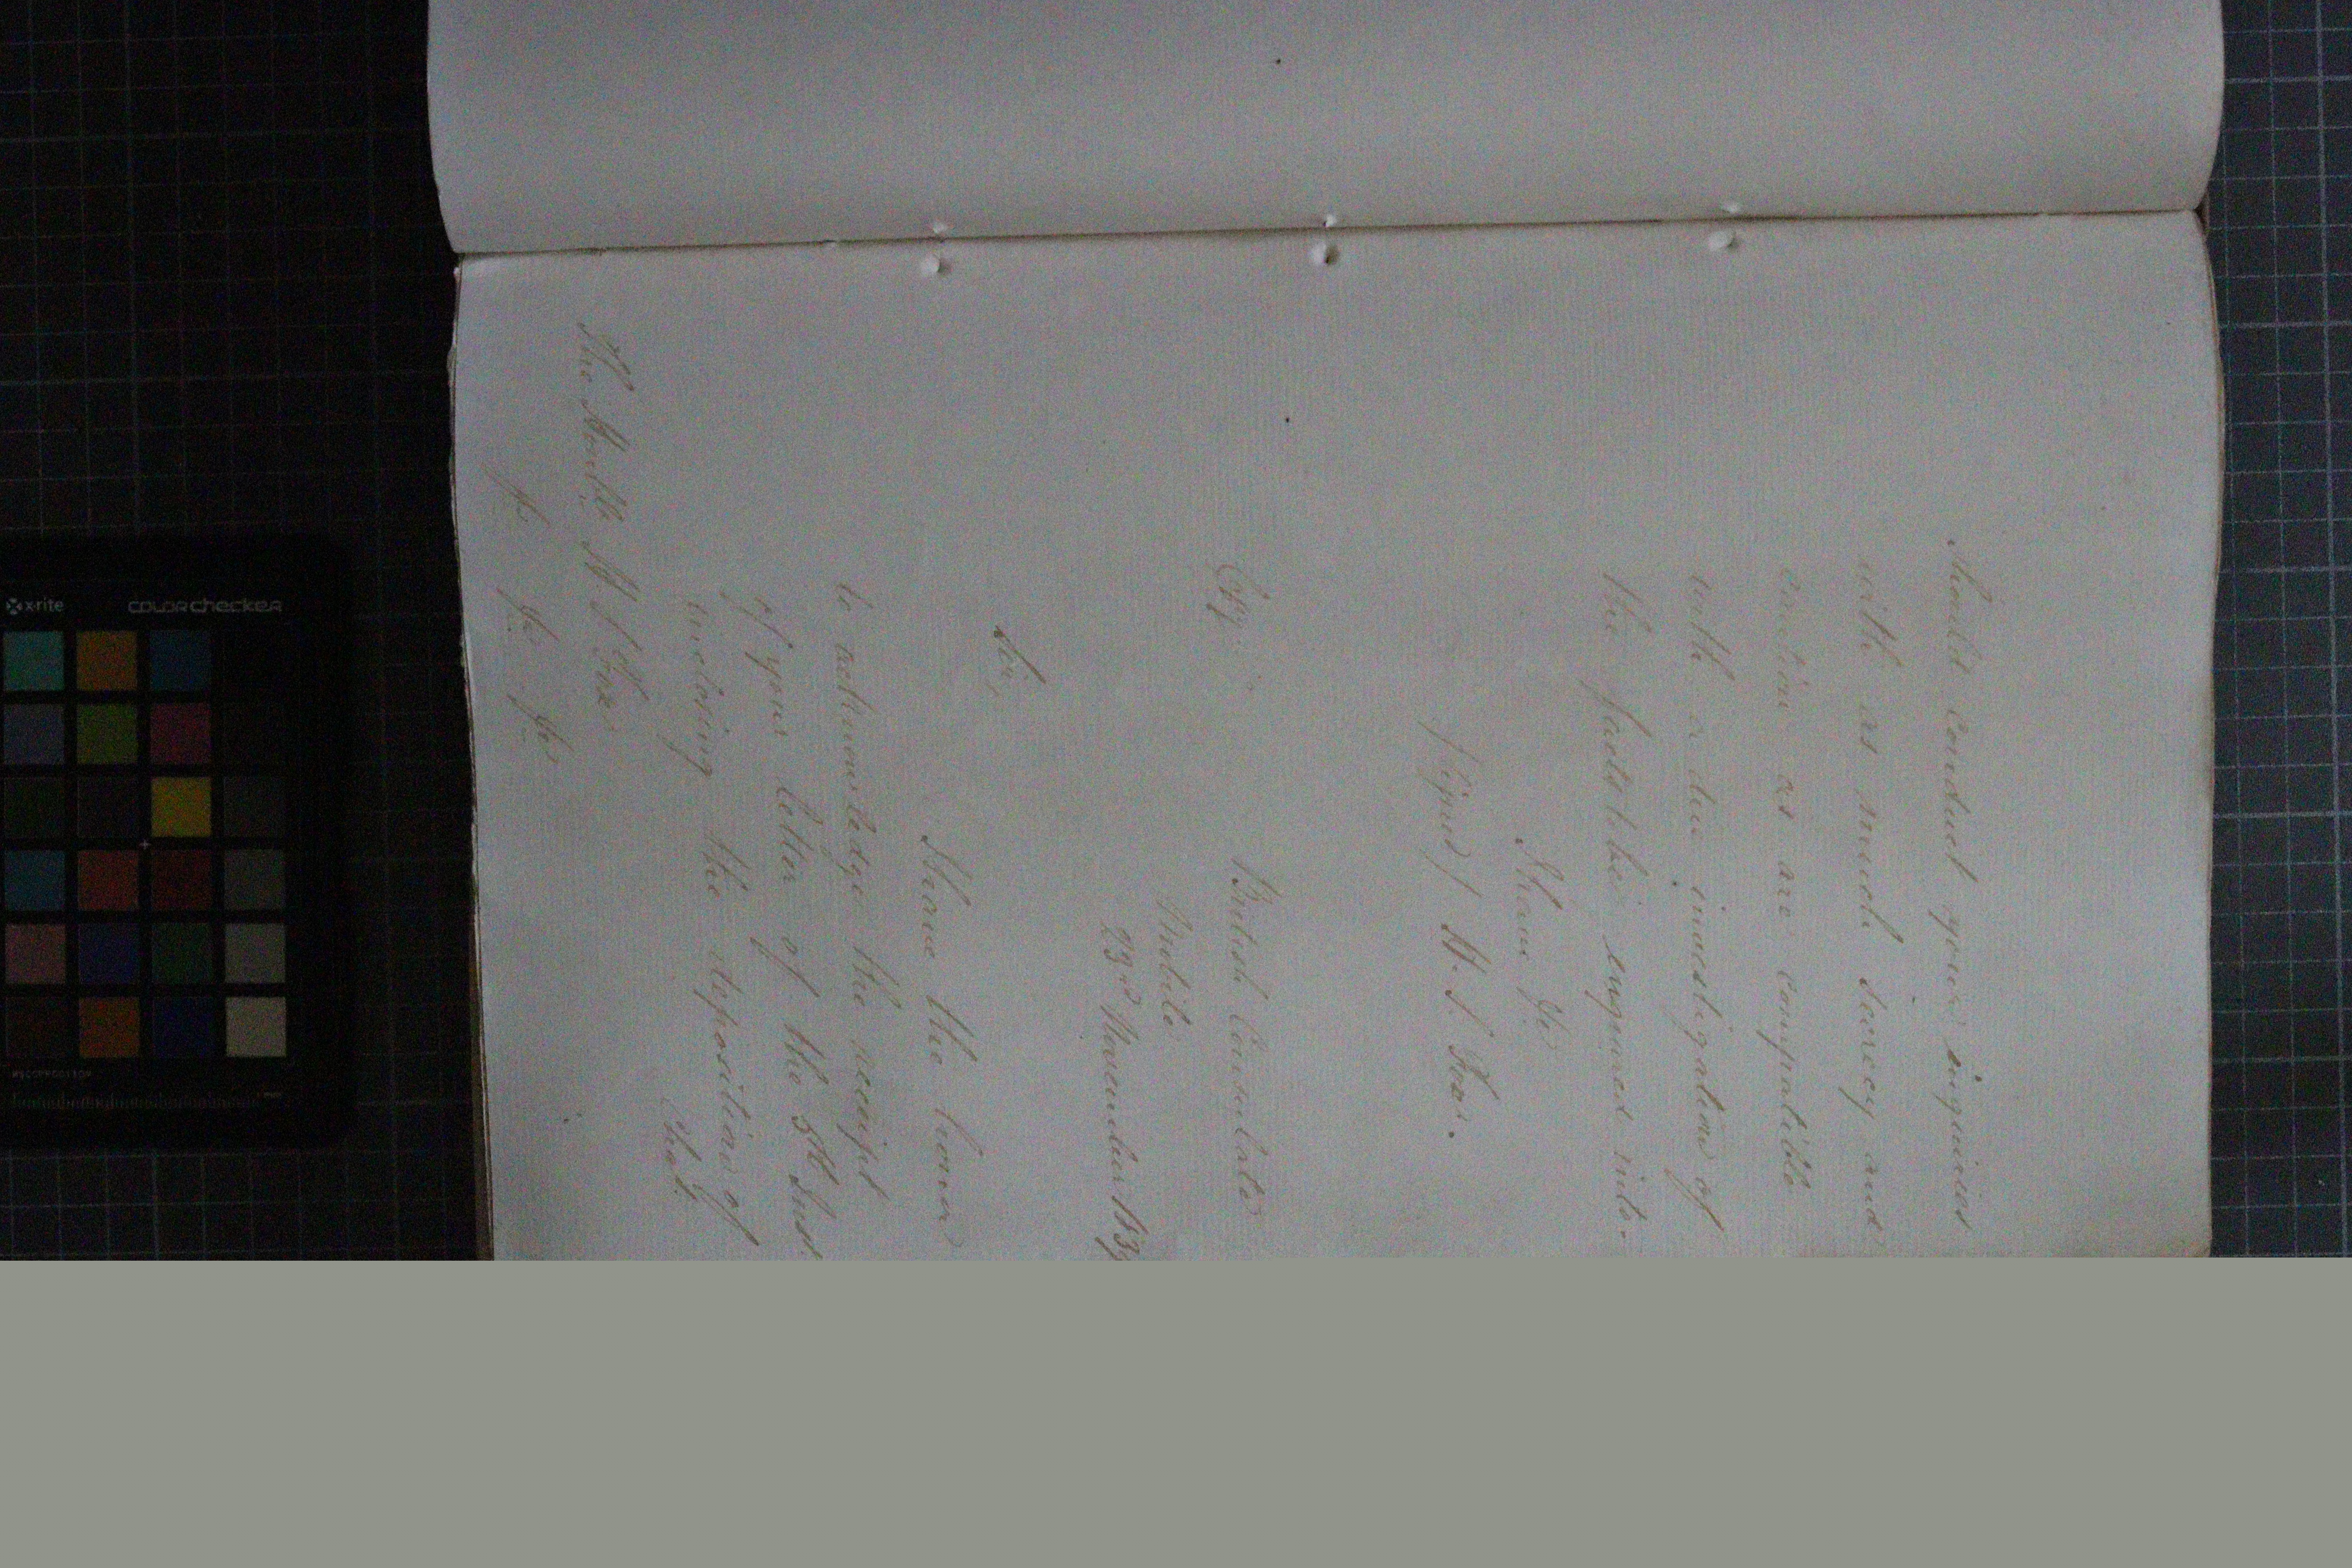 should conduct your inquiries
with as much secrecy and
caution as are compatible
with a due investigation of
the facts to be enquired into.
I have &c
(signed) H. S. Fox.
Copy.
British Consulate
Mobile
23rd November 183
Sir,
I have the honor
to acknowledge the receipt
of your letter of the 5th Inst
inclosing the deposition of
Chas.
The Honble H S Fox
&c &c &c
x-rite
colorchecker